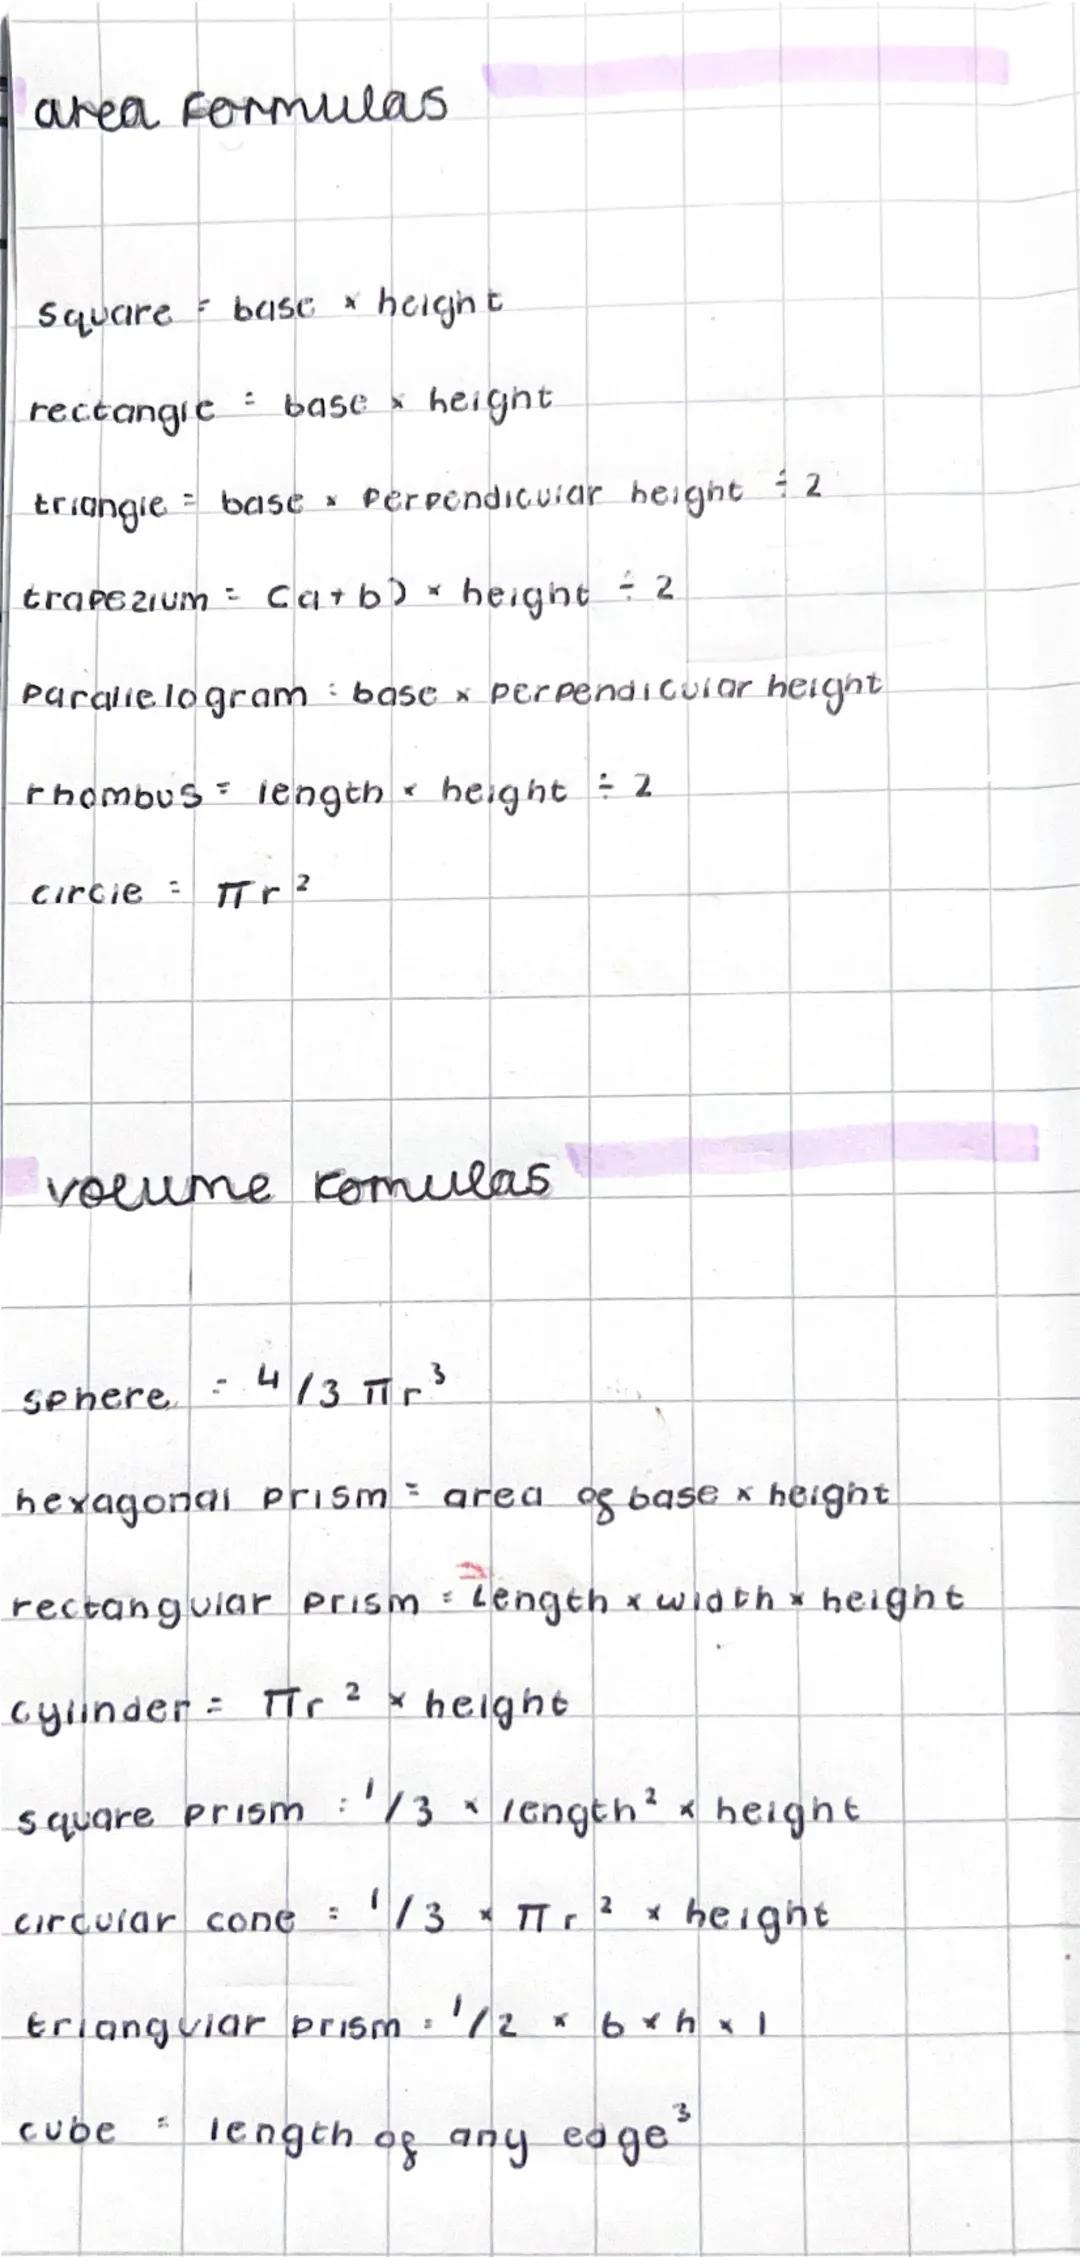 area formulas
square = base × height
rectangle = base × height
triangle = base × perpendicular height ÷ 2
trapezium = (a+b) × height ÷ 2
parallelogram = base × perpendicular height
rhombus = length × height ÷ 2
circle = πr²
volume fomulas
sphere = 4/3 πr³
hexagonal prism = area of base × height
rectangular prism = Length × width × height
cylinder = πr² × height
square prism = 1/3 × length² × height
circular cone = 1/3 × πr² × height
triangular prism = 1/2 × b × h × l
cube = length of any edge³